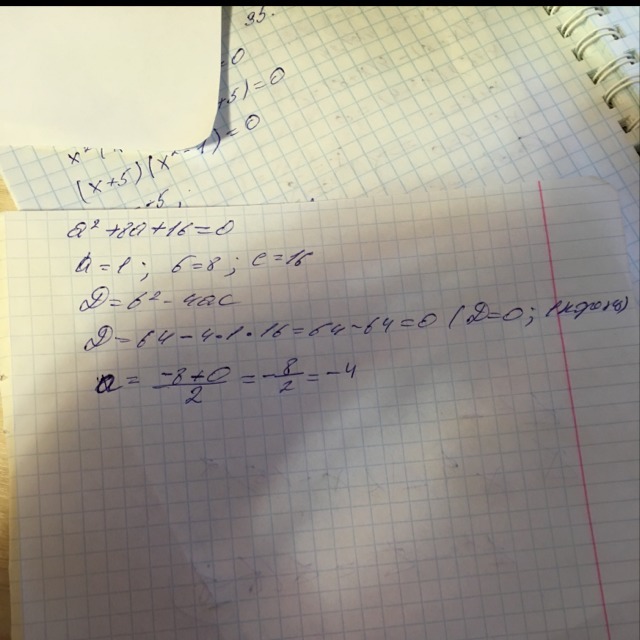 95.
=0
+5)=0
(x+5)(x²-1)=0
a²+8a+16=0
a=1; b=8; c=16
D=b²-4ac
D=64-4·1·16=64-64=0 (D=0; 1 корень)
a = -8+0/2 = -8/2 = -4